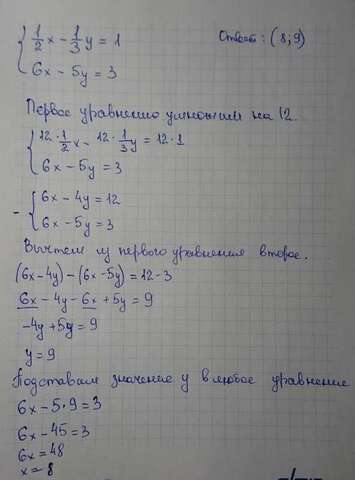 1/2 x - 1/3 y = 1 Ответ: (8;9)
6x - 5y = 3
Первое уравнение умножим на 12.
12·1/2 x - 12·1/3 y = 12·1
6x - 5y = 3
- 6x - 4y = 12
6x - 5y = 3
Вычтем из первого уравнения второе.
(6x-4y)-(6x-5y) = 12-3
6x - 4y - 6x + 5y = 9
-4y + 5y = 9
y = 9
Подставим значение y в любое уравнение
6x - 5·9 = 3
6x - 45 = 3
6x = 48
x = 8